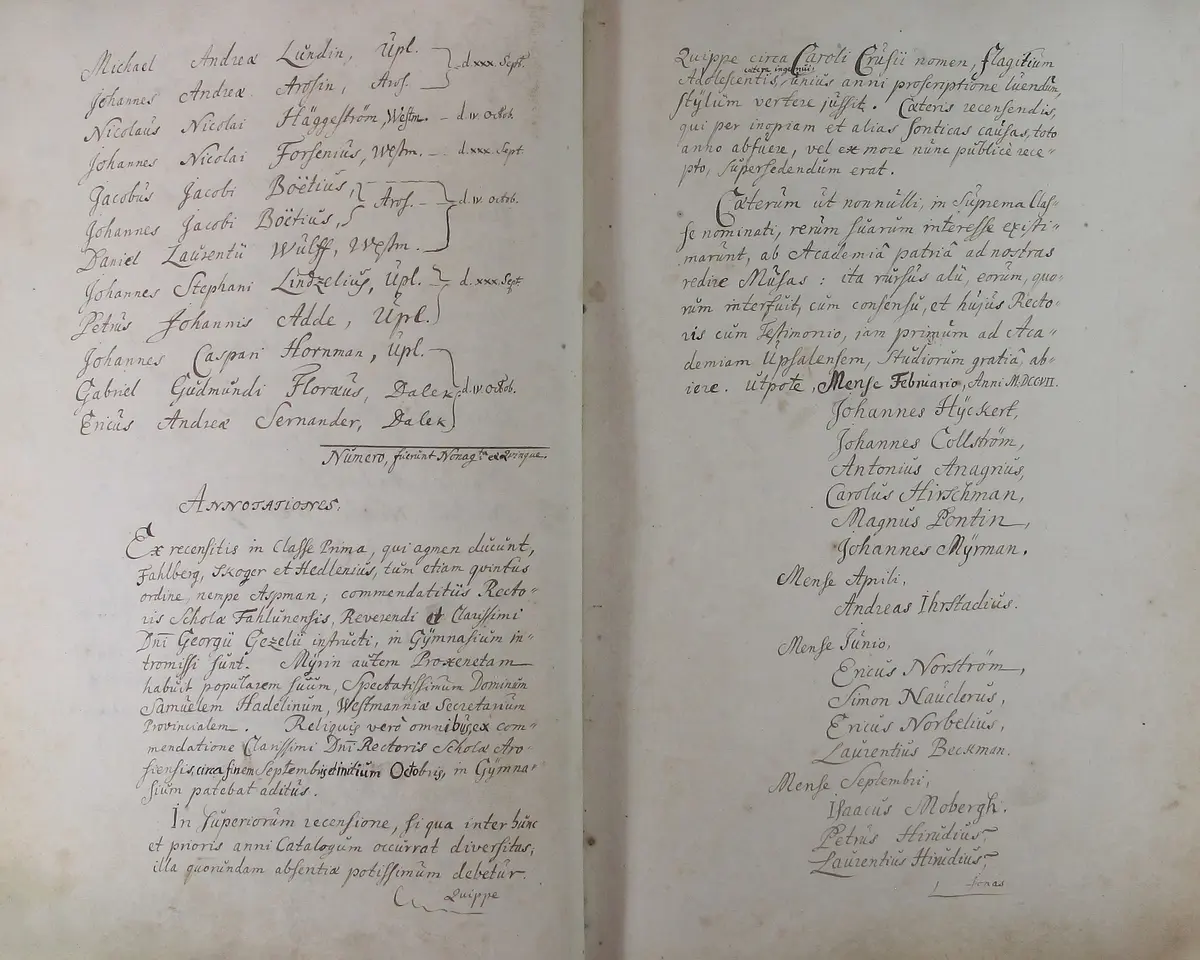 Michael Andreæ Lundin, Üpl. } d. xxx. Sept.
Johannes Andreæ Arosin, Aros.
Nicolaüs Nicolai Häggeström, Westm. – d. iv. Octob.
Johannes Nicolai Forsenius, Westm. – d. xxx. Sept.
Jacobüs Jacobi Boëtiüs, } Aros. – } d. iv. Octob.
Johannes Jacobi Boëtiüs,
Daniel Laurentii Wülff, Westm.
Johannes Stephani Lindzeliüs, Üpl. } d. xxx. Sept
Petrüs Johannis Adde, Üpl.
Johannes Caspari Hornman, Üpl. } d. iv. Octob.
Gabriel Güdmündi Floræüs, Dalek
Ericüs Andreæ Sernander, Dalek
Nümero, füerünt Nonag.ta et Quinque.
Annotationes.
Ex recensitis in Classe Prima, qui agmen dücünt,
Fahlberg, Skoger et Hedlenius, tüm etiam qvintüs
ordine, nempe Aspman; commendatitiis Recto-
ris Scholæ Fahlünensis, Reverendi et Clarissimi
Dni Georgii Gezelii instrücti, in Gymnasiüm in-
tromissi sünt. Myrin aütem Proxenetam
habüit popülarem süüm, Spectatissimüm Dominüm
Samüelem Hadelinüm, Westmanniæ Secretariüm
Provincialem. Reliqüis verò omnibüs, ex com-
mendatione Clarissimi Dni Rectoris Scholæ Aro-
siensis, circa finem Septembris et initium Octobris, in Gymna-
siüm patebat aditüs.
In süperiorüm recensione, si qua inter hünc
et prioris anni Catalogüm occürrat diversitas;
illa quorundam absentiæ potissimüm debetür.
Quippe
Quippe circa Caroli Crüsii nomen, flagitiüm
Adolescentis, ünius anni proscriptione lüendüm,
stylüm vertere jüssit. Cæteris recensendis,
qui per inopiam et alias sonticas caüsas, toto
anno abfüêre, vel ex more nünc püblicè rece-
pto, süpersedendüm erat.
Cæterüm üt nonnülli, in Süprema Clas-
se nominati, rerüm süarüm interesse existi-
marünt, ab Academiâ patriâ ad nostras
redire Müsas: ita rürsüs alii, eorüm, quo-
rüm interfüit, cüm consensü, et hüjüs Recto-
ris cüm Testimonio, iam primüm ad Aca-
demiam Üpsalensem, Stüdiorüm gratiâ, ab-
iere. Utpote, Mense Februario, Anni MDCCVII.
Johannes Hyckert,
Johannes Collström,
Antonius Anagrius,
Carolus Hirschman,
Magnus Pontin,
Johannes Myrman.
Mense Aprili,
Andreas Ihrstadiüs.
Mense Jünio,
Ericüs Norström,
Simon Naüclerüs,
Ericüs Norbeliüs,
Laürentiüs Beckman.
Mense Septembri,
Isaacüs Mobergh.
Petrüs Hirudiüs,
Laürentiüs Hirudiüs,
Jonas